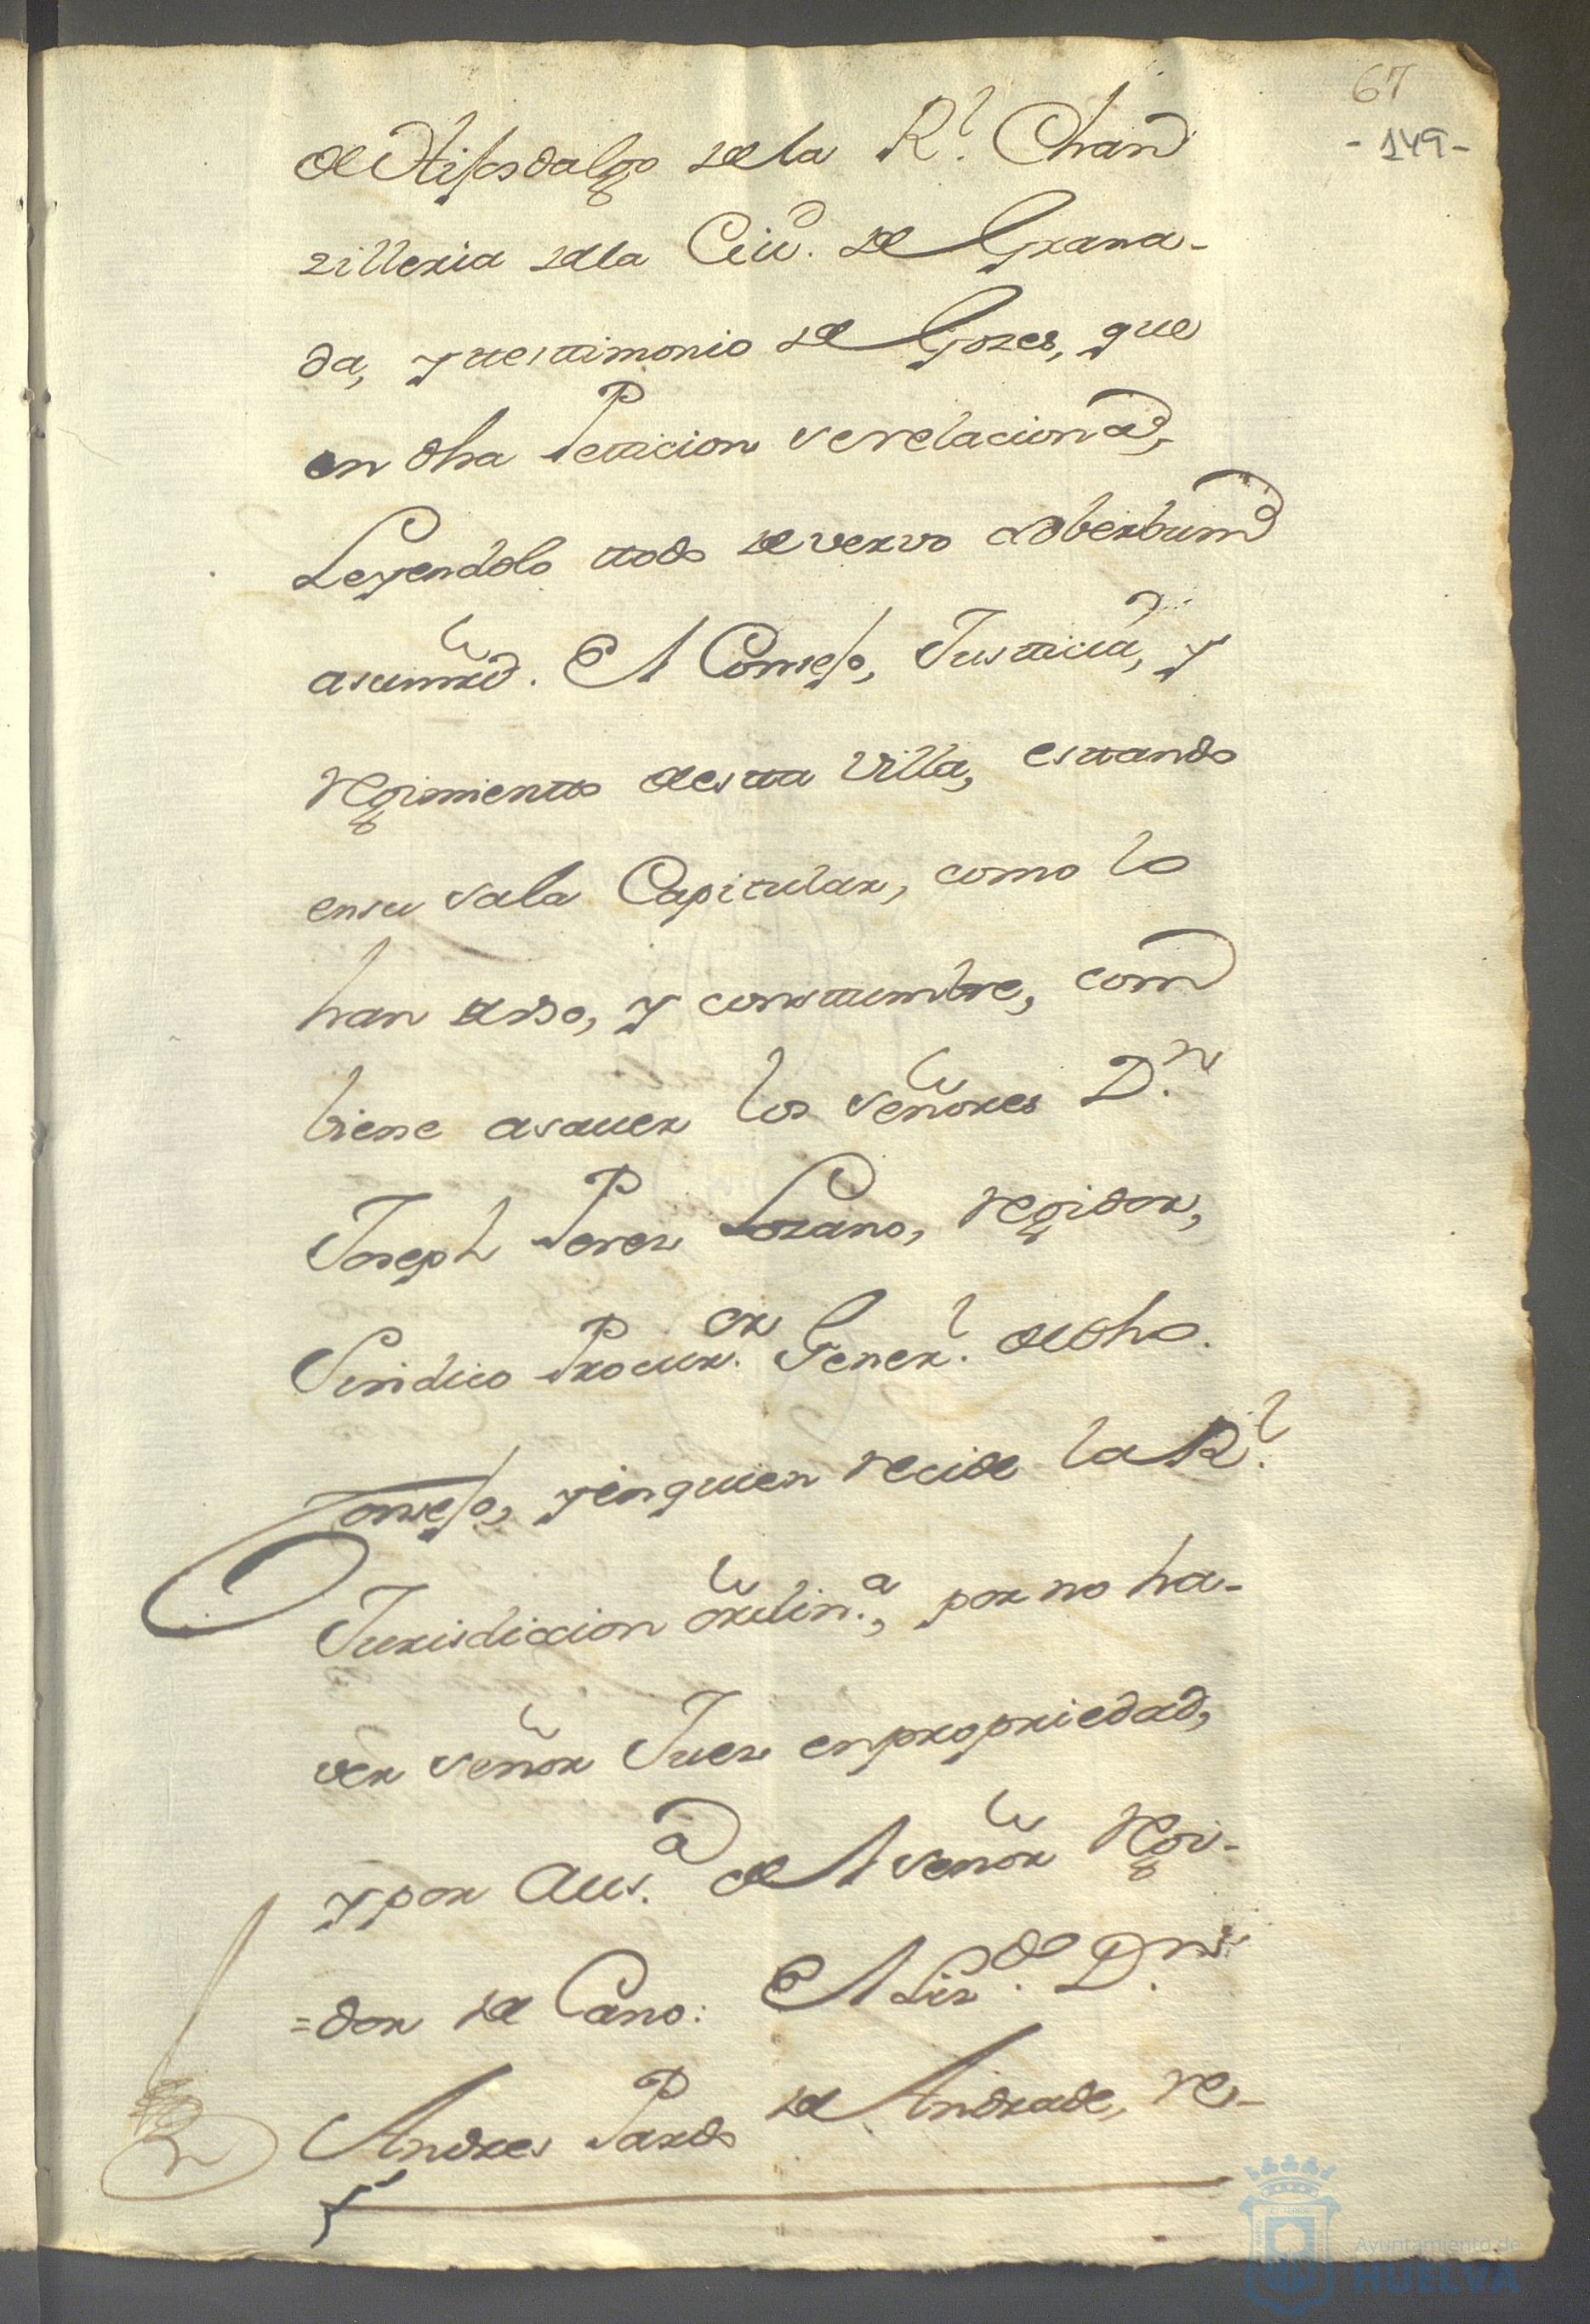 67
- 149 -
de Hijosdalgo de la Rl. Chan
zilleria dela Ciud. de Grana-
da, y ttesttimonio de Gozes, que
en dha Petticion se relaciona,
Leyendolo ttodo de vervo adberbum
asumrd. El Consejo, Justticia, y
regimientto destta Villa, esttando
ensu sala Capitular, como lo
han de uso, y consttumbre, com
biene asauer los señores Dn.
Joseph Perez Lozano, regidor,
Sindico Procuror. Generl. de dho.
Consejo, yenquien recide la Rl.
Jurisdiccion ordina., por no ha-
ver señor Juez enpropriedad,
y por Ausa. del señor regi-
=dor de Cano: El Lizdo. Dn.
Andres Pardo de Andrade, re-
Ayuntamiento de
HUELVA